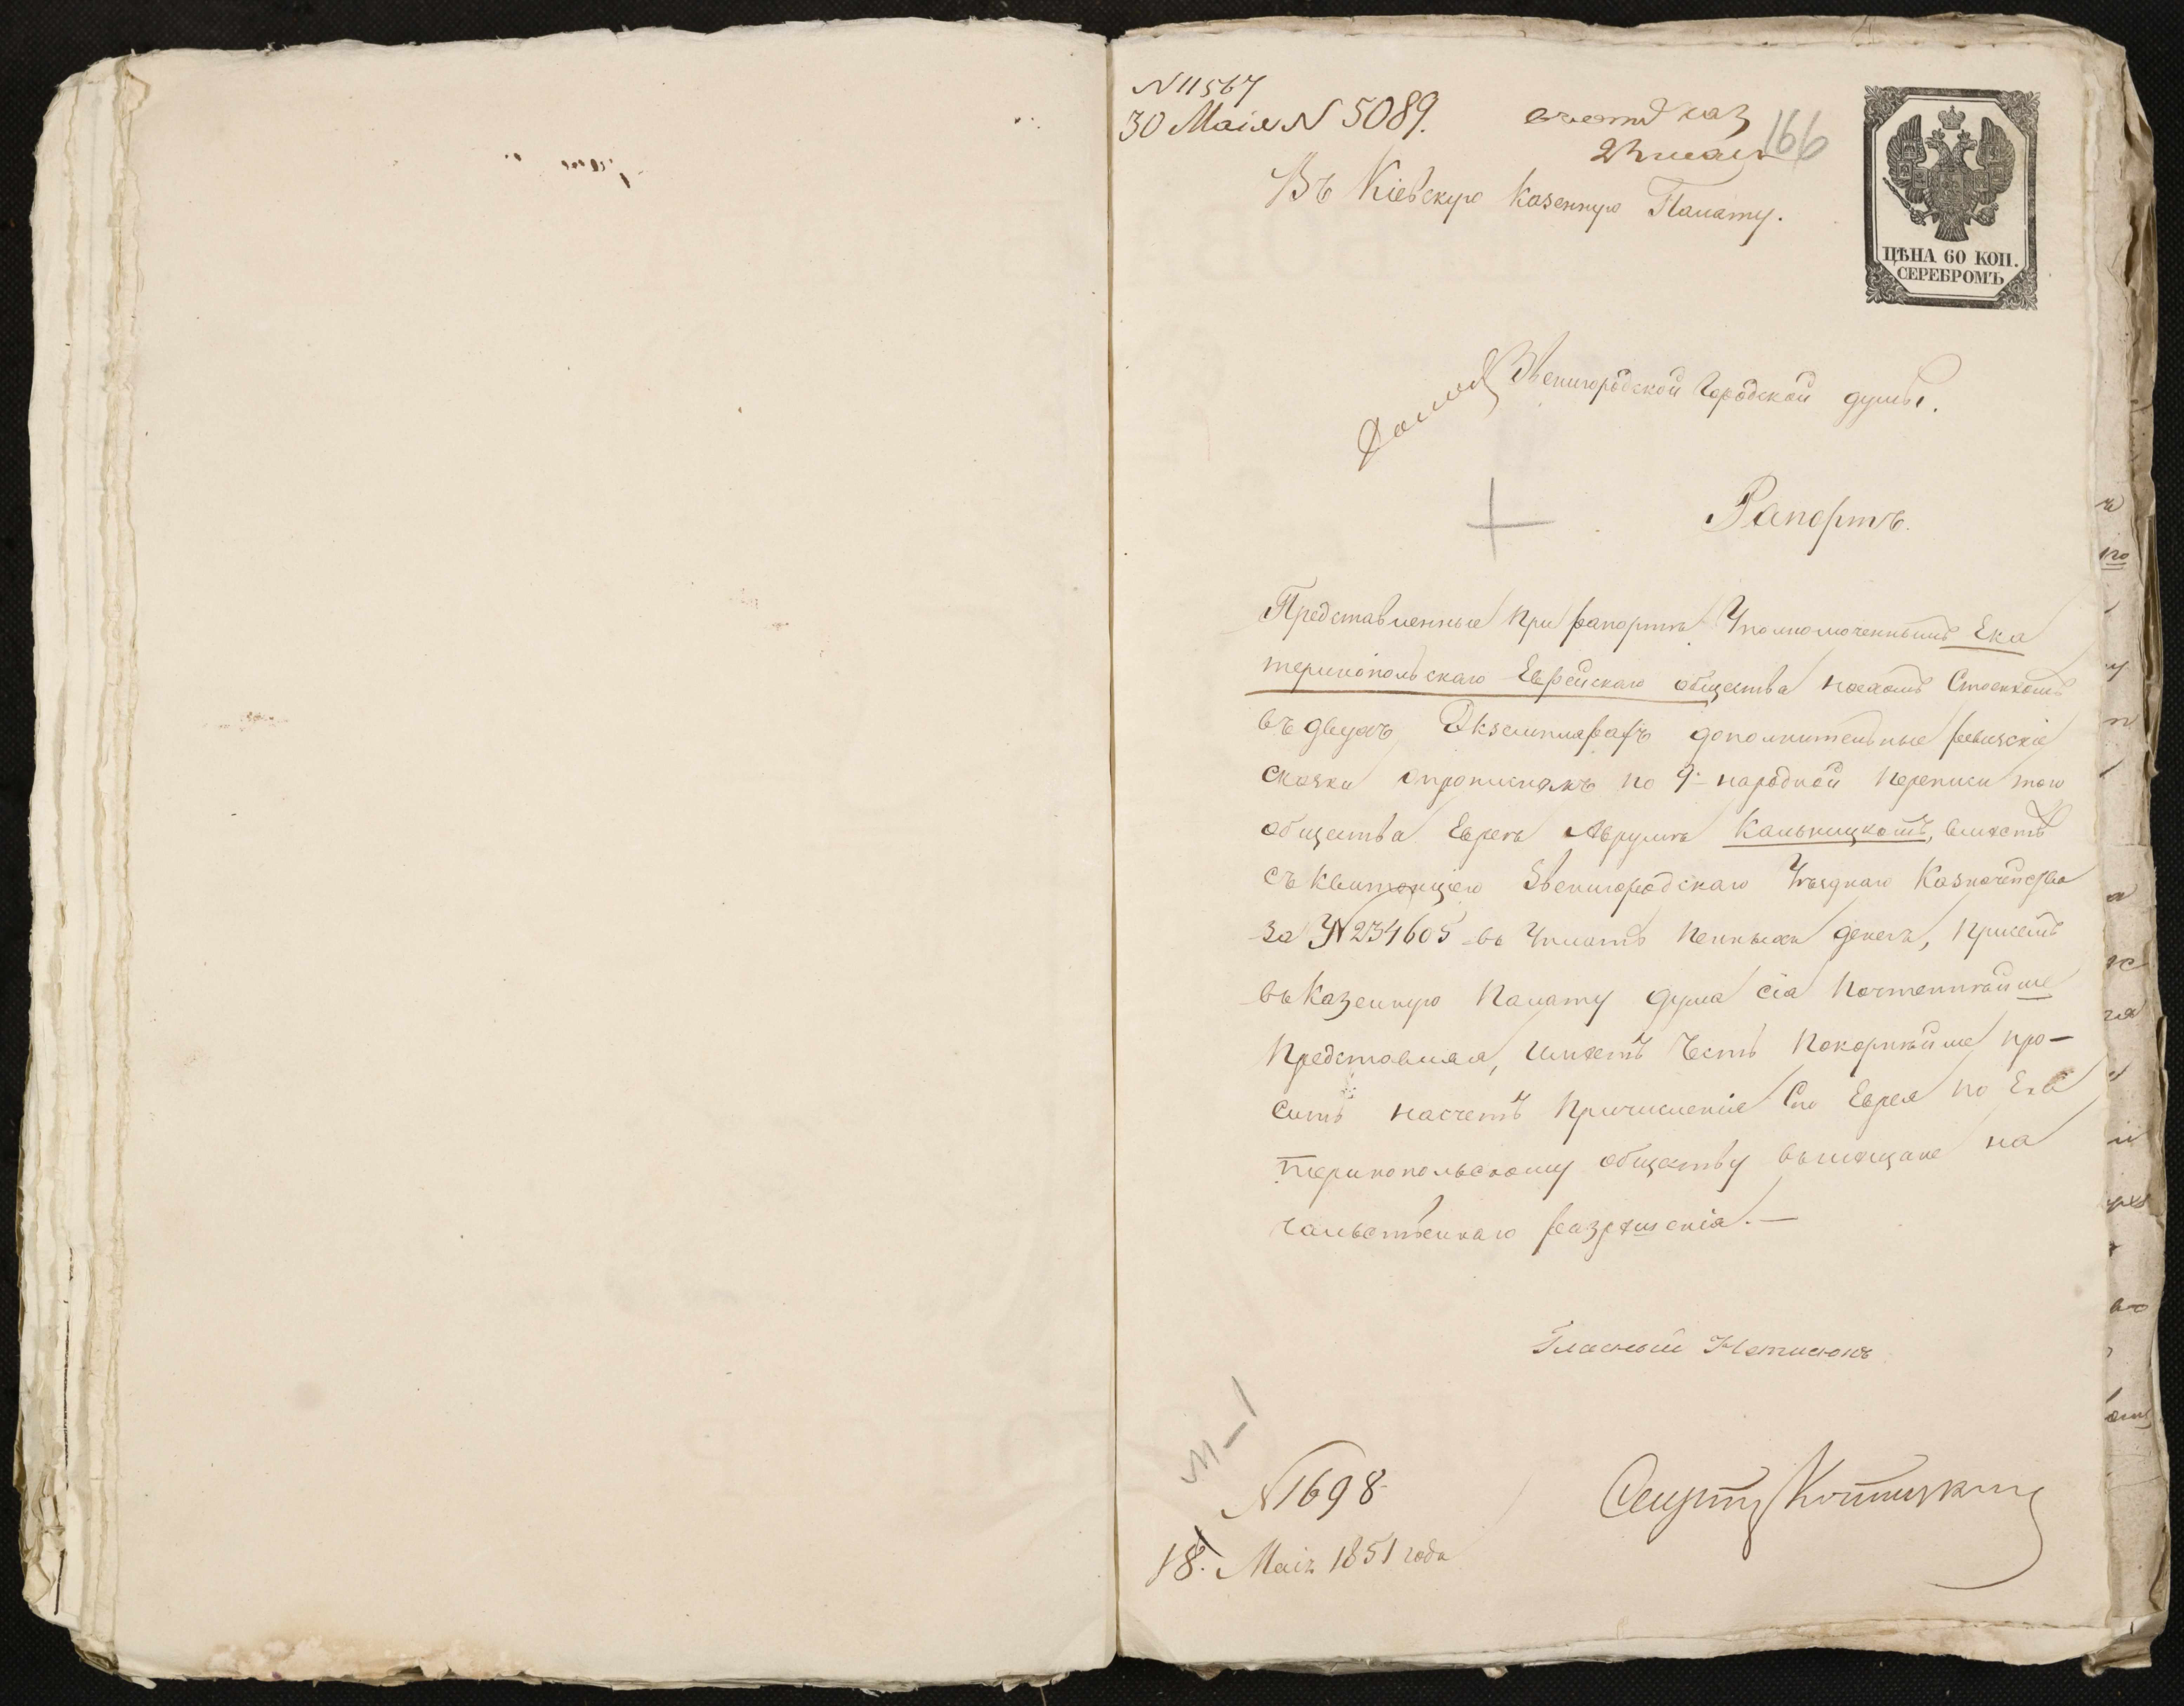 N 11567
30 Маія N 5089.
166
Въ Кіевскую Казенную Палату.
ЦѢНА 60 КОП.
СЕРЕБРОМЪ
Звенигородской Городской думы.
Рапортъ.
Представленные при рапортѣ Уполномоченнымъ Ека
теринопольскаго Еврейскаго общества
въ двухъ Экземплярахъ дополнительные ревизскіе
сказки опрописномъ по 9й народной переписи того
общества Евреѣ Аврумѣ Кальницкомъ, вмѣстѣ
съ квитанціею Звенигородскаго Уѣзднаго Казначейства
за N 234605 въ Уплатѣ пенныхъ денегъ, присемъ
въ Казенную Палату дума сіа почтеннѣйше
представляя, имѣетъ Честь покорнѣйше про-
сить насчетъ причисленіе Сго Еврея по Ека
теринопольскому обществу вмѣщане на
чальственнаго разрѣшенія. —
Гласный
N 1698
18. Маія 1851 года